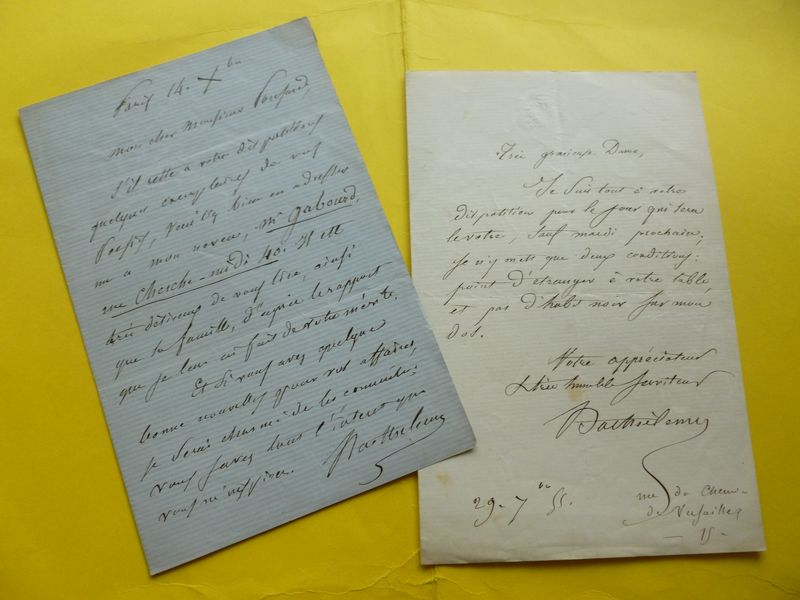 Paris 14. Xbre
Mon cher Monsieur Ponsard,
S'il reste à votre disposition
quelques exemplaires de vos
Poésies, veuillez bien en adresser
un à mon neveu, Mr Gabourd,
rue Cherche-midi 40. Il est
très désireux de vous lire, ainsi
que sa famille, d'après le rapport
que je leur ai fait de votre mérite.
Et si vous avez quelque
bonne nouvelle pour vos affaires,
je serai charmé de les connaître:
vous savez tout l'intérêt que
vous m'inspirez. Barthélemy
Très gracieuse Dame,
Je suis tout à votre
disposition pour le jour qui sera
le vôtre, sauf mardi prochain;
je n'y mets que deux conditions:
point d'étranger à votre table
et pas d'habit noir sur mon
dos.
Votre appréciateur
& très humble serviteur
Barthélemy
29. 7bre 55.
rue du Chemin
de Versailles
— 15 —